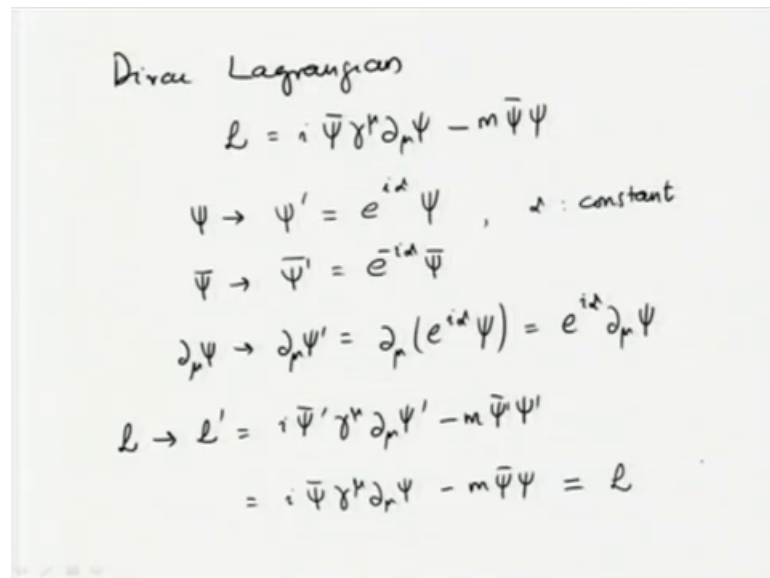 Dirac Lagrangian
ℒ = i ψ̄ γ^μ ∂_μ ψ − m ψ̄ ψ
ψ → ψ' = e^{iα} ψ , α : constant
ψ̄ → ψ̄' = e^{-iα} ψ̄
∂_μ ψ → ∂_μ ψ' = ∂_μ (e^{iα} ψ) = e^{iα} ∂_μ ψ
ℒ → ℒ' = i ψ̄' γ^μ ∂_μ ψ' − m ψ̄' ψ'
= i ψ̄ γ^μ ∂_μ ψ − m ψ̄ ψ = ℒ